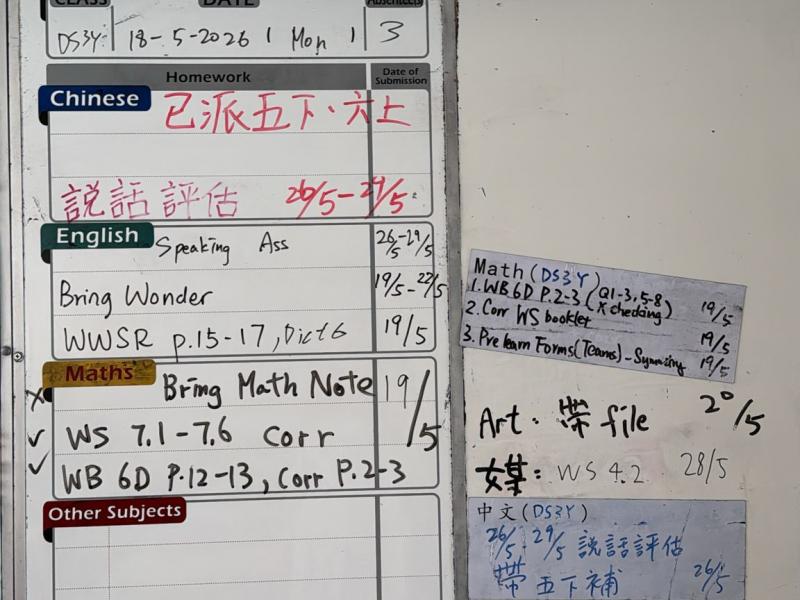 CLASS DATE Absentees
DS3Y 18-5-2026 Mon 3
Homework Date of Submission
Chinese
已派五下、六上
説話評估 26/5-29/5
English
Speaking Ass 26/5-29/5
Bring Wonder 19/5-22/5
WWSR p.15-17, Dict 6 19/5
Maths
Bring Math Note 19/5
WS 7.1-7.6 Corr
WB 6D P.12-13, Corr P.2-3
Other Subjects
Math (DS3Y)
1. WB 6D P.2-3 (Q1-3, 5-8) 19/5
X checking
2. Corr WS booklet 19/5
3. Prelearn Forms (Teams) - 19/5
Art. 帶 file 20/5
WS 4.2 28/5
中文 (DS3Y)
26/5-29/5 説話評估
帶五下補 26/5